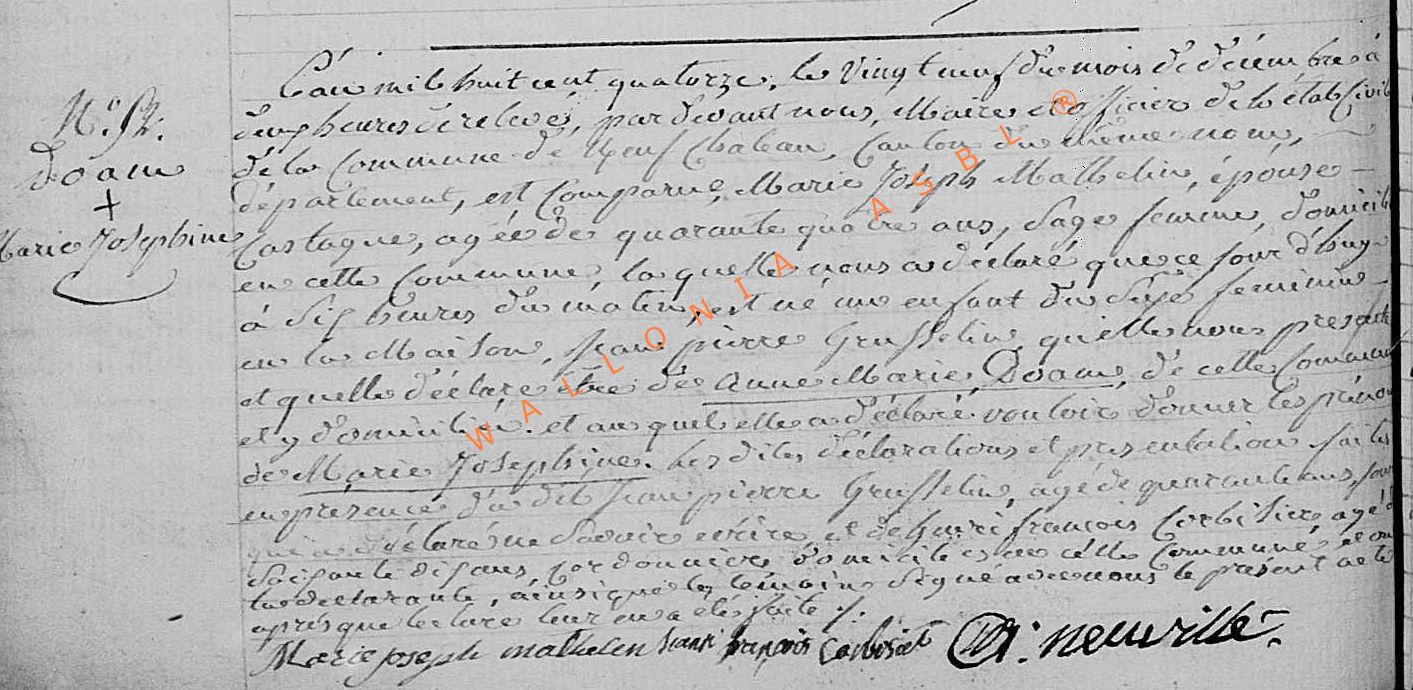 N.° 52.
Doam
+
Marie Josephine
L'an mil huit cent quatorze, le vingt neuf du mois de décembre à
deux heures de relevé, pardevant nous, Maire et officier de l'état Civil
de la Commune de Neufchateau, Canton du même nom,
département, est Comparue, Marie Joseph Mathelin, épouse
Castagne, agée de quarante quatre ans, Sage femme, domicilié
en cette Commune, la quelle nous a déclaré que ce jour d'huy
à Six heures du matin, est né un enfant du Sexe feminin
en la Maison, Jean pierre Grusselin, qu'elle nous presente
et quelle déclare être de Anne Marie Doam, de cette Commune
et y domicilié. et au quel elle a déclaré vouloir donner les prénoms
de Marie Josephine. Les dites déclarations et presentation faites
en presence du dit Jean pierre Grusselin, agé de quarante ans,
qui a déclaré ne Savoir écrire, et de henri françois Corbisier agé de
Soixante dix ans, cordonnier domiciliés en cette Commune, et ont
la déclarante, ainsi que les témoins Signé avec nous le présent acte
après que lecture leur en a été faite ./.
Marie joseph mathelin henri françois Corbisier A: neuville
WALLONIA ASBL ®